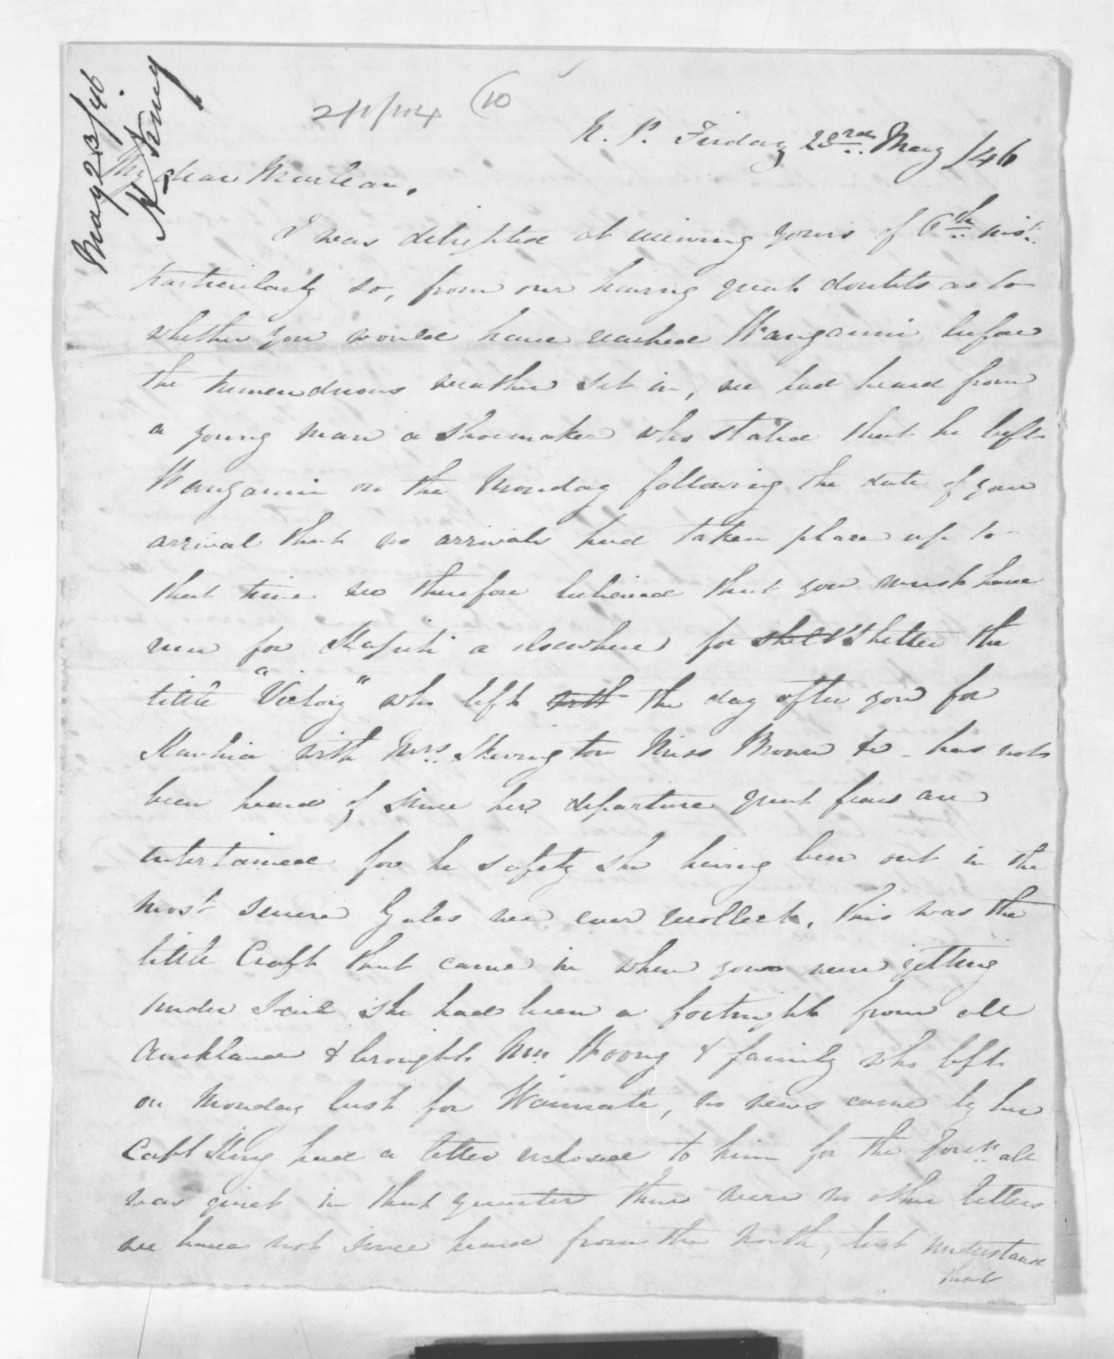 May 23/46.
H. King
2/1/114 (10
N. P. Friday 23rd May /46
My dear Maclean,
I was delighted at receiving yours of 6th inst.
particularly so, from our having great doubts as to
whether you would have reached Wanganui before
the tremenduous weather set in, we had heard from
a young man a shoemaker who stated that he left
Wanganui on the Monday following the date of your
arrival that no arrivals had taken place up to
that time we therefore believed that you must have
run for Kapiti or elsewhere for shelter the
little "Victory" who left the day after you for
Kawhia with Mrs. Skevington Miss Brown &c - has not
been heard of since her departure great fears are
entertained for he safety she having been out in the
most severe Gales we ever recollect, this was the
little Craft that came in when you were getting
under sail she had been a fortnight from
Auckland & brought Mrs & family who left
on Monday last for Waimate, no news came by her
Capt King had a letter enclosed to him for the all
was quiet in that quarter there were no other letters
we have not since heard from the North, but understand
that